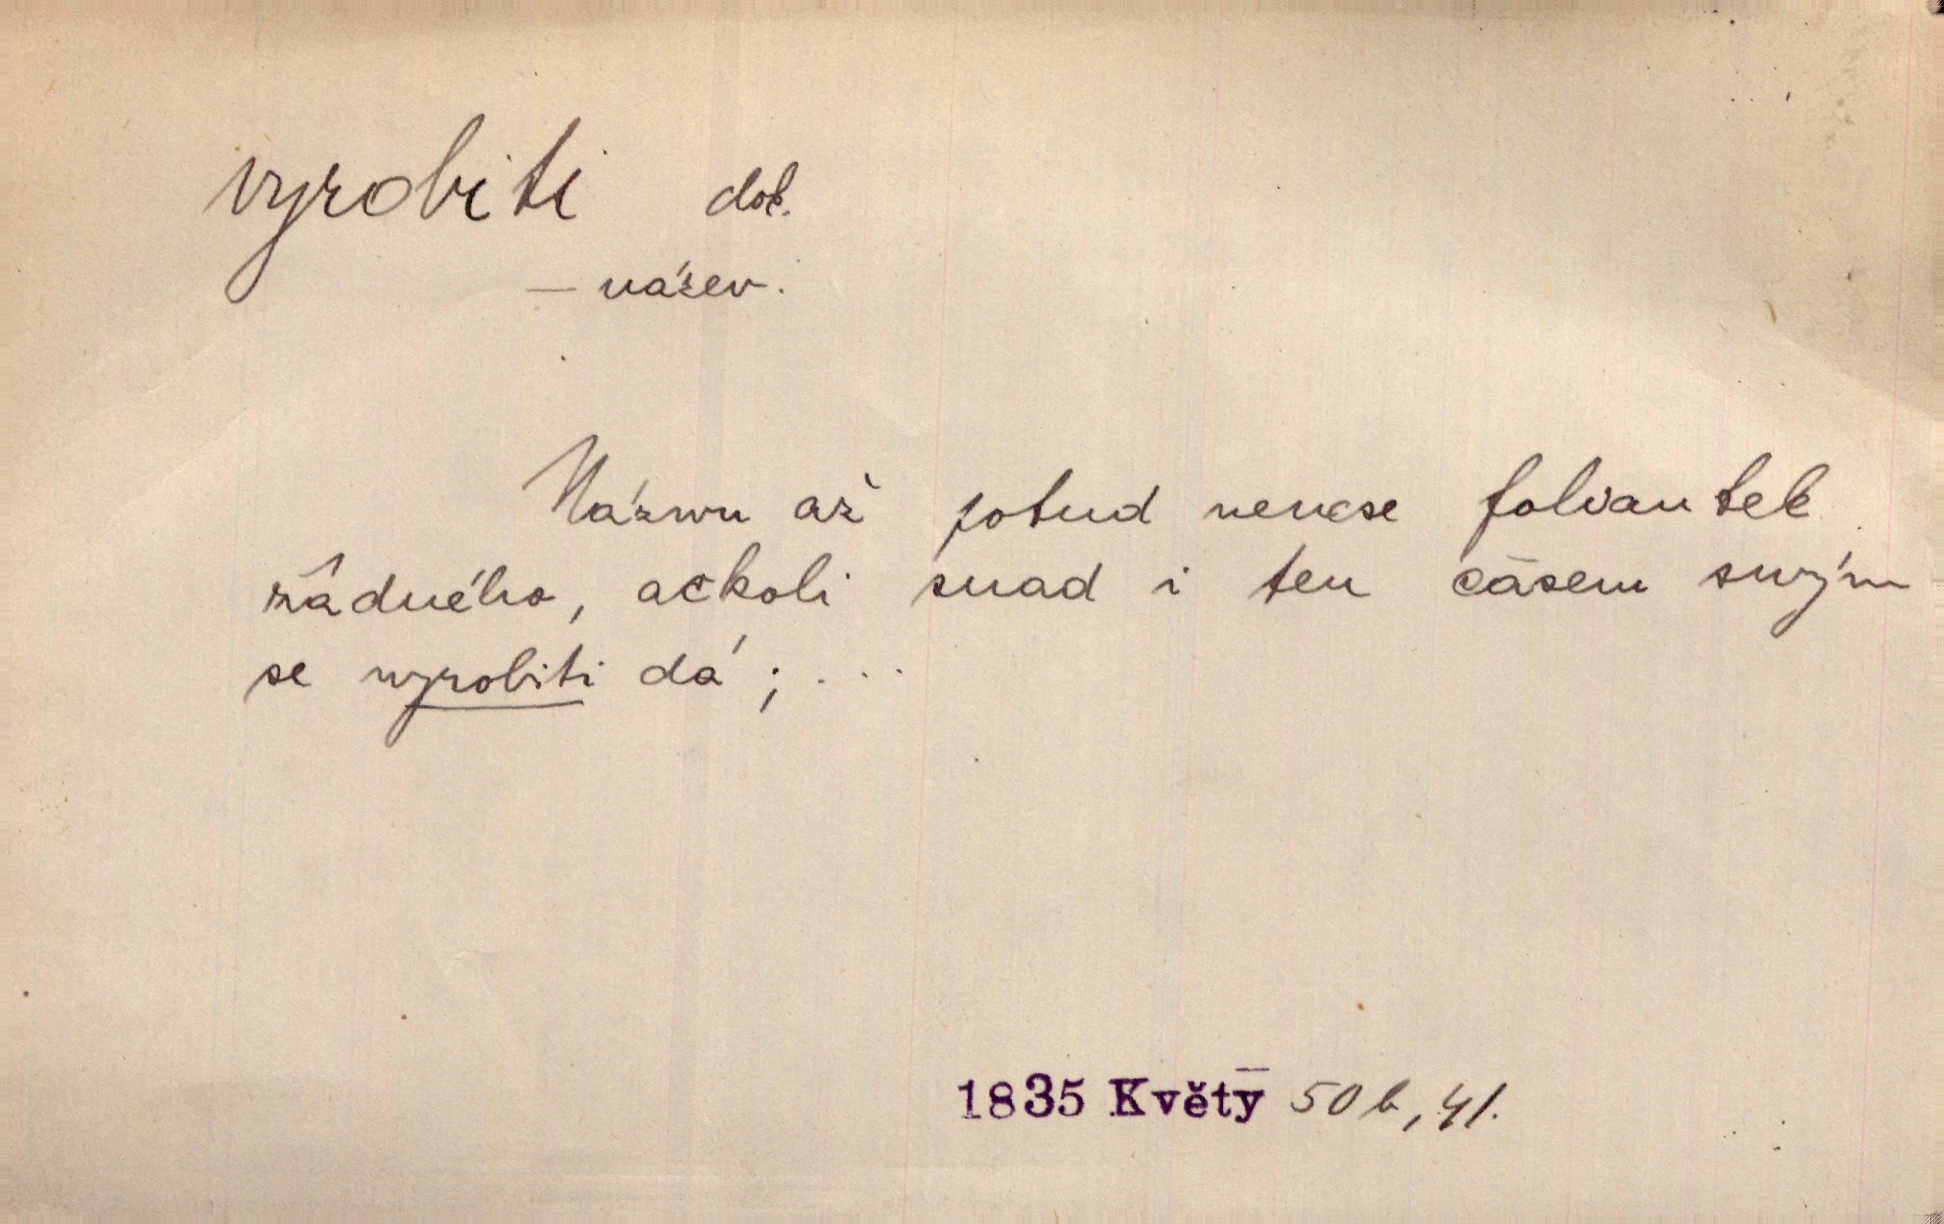 vyrobiti dok.
— název.
Názwu až potud nenese foliantek
žádného, ačkoli snad i ten časem swým
se wyrobiti dá; ...
1835 Květy 50 b, 41.